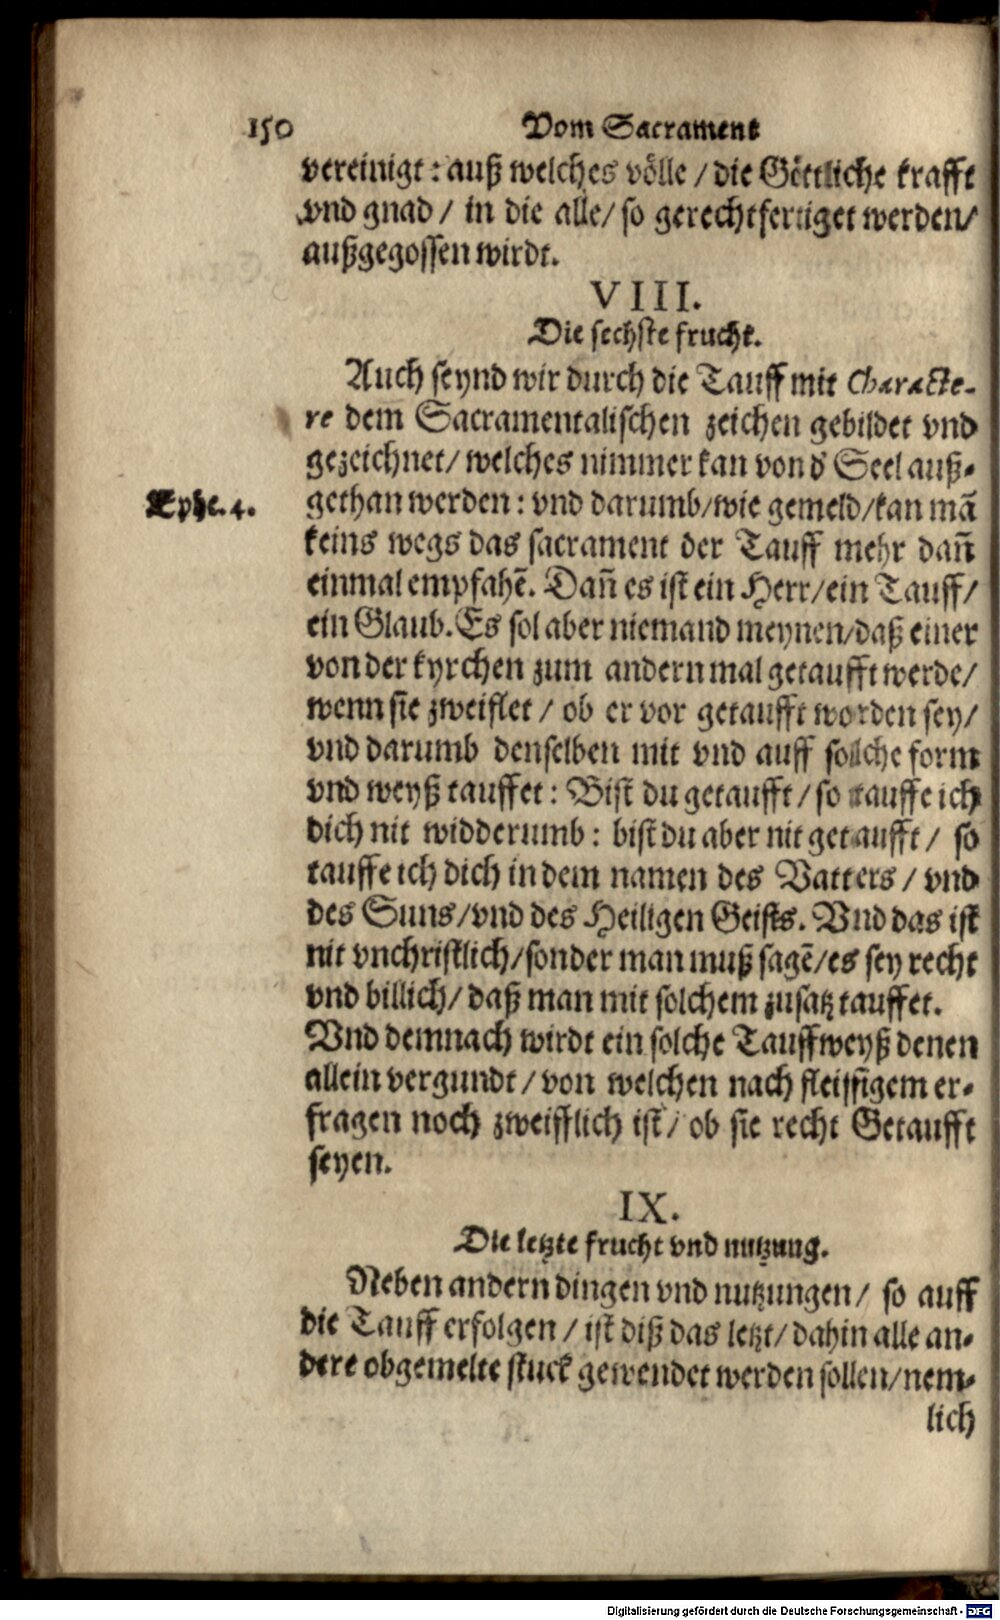 150 Vom Sacrament
vereinigt: auß welches völle / die Göttliche krafft
vnd gnad / in die alle / so gerechtfertiget werden /
außgegossen wirdt.
VIII.
Die sechste frucht.
Auch seynd wir durch die Tauff mit Characte-
re dem Sacramentalischen zeichen gebildet vnd
gezeichnet / welches nimmer kan von d' Seel auß-
Ephe. 4. gethan werden: vnd darumb / wie gemeld / kan mā
keins wegs das sacrament der Tauff mehr dañ
einmal empfahē. Dañ es ist ein Herr / ein Tauff /
ein Glaub. Es sol aber niemand meynen / daß einer
von der kyrchen zum andern mal getaufft werde /
wenn sie zweiflet / ob er vor getaufft worden sey /
vnd darumb denselben mit vnd auff solche form
vnd weyß tauffet: Bist du getaufft / so tauffe ich
dich nit widderumb: bist du aber nit getaufft / so
tauffe ich dich in dem namen des Vatters / vnd
des Suns / vnd des Heiligen Geists. Vnd das ist
nit vnchristlich / sonder man muß sagē / es sey recht
vnd billich / daß man mit solchem zusatz tauffet.
Vnd demnach wirdt ein solche Tauffweyß denen
allein vergundt / von welchen nach fleissigem er-
fragen noch zweifflich ist / ob sie recht Getaufft
seyen.
IX.
Die letzte frucht vnd nutzung.
Neben andern dingen vnd nutzungen / so auff
die Tauff erfolgen / ist diß das letzt / dahin alle an-
dere obgemelte stuck gewendet werden sollen / nem-
lich
Digitalisierung gefördert durch die Deutsche Forschungsgemeinschaft - DFG